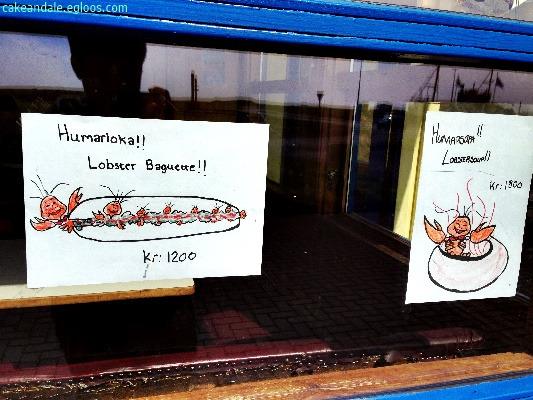 cakeandale.egloos.com
Humarloka!!
Lobster Baguette!!
Kr: 1200
HUMARSÚPA!!
LOBSTERSOUP!!
Kr: 1800